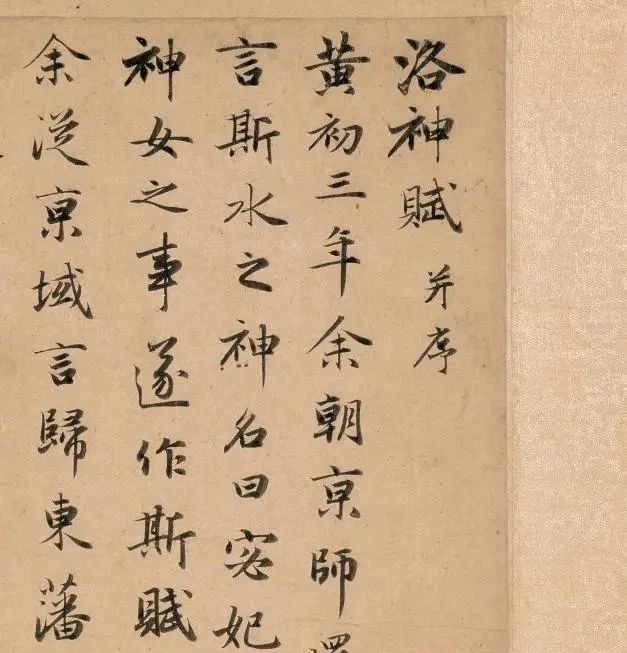 洛神賦 并序
黄初三年余朝京師
言斯水之神名曰宓妃
神女之事遂作斯賦
余從京域言歸東藩